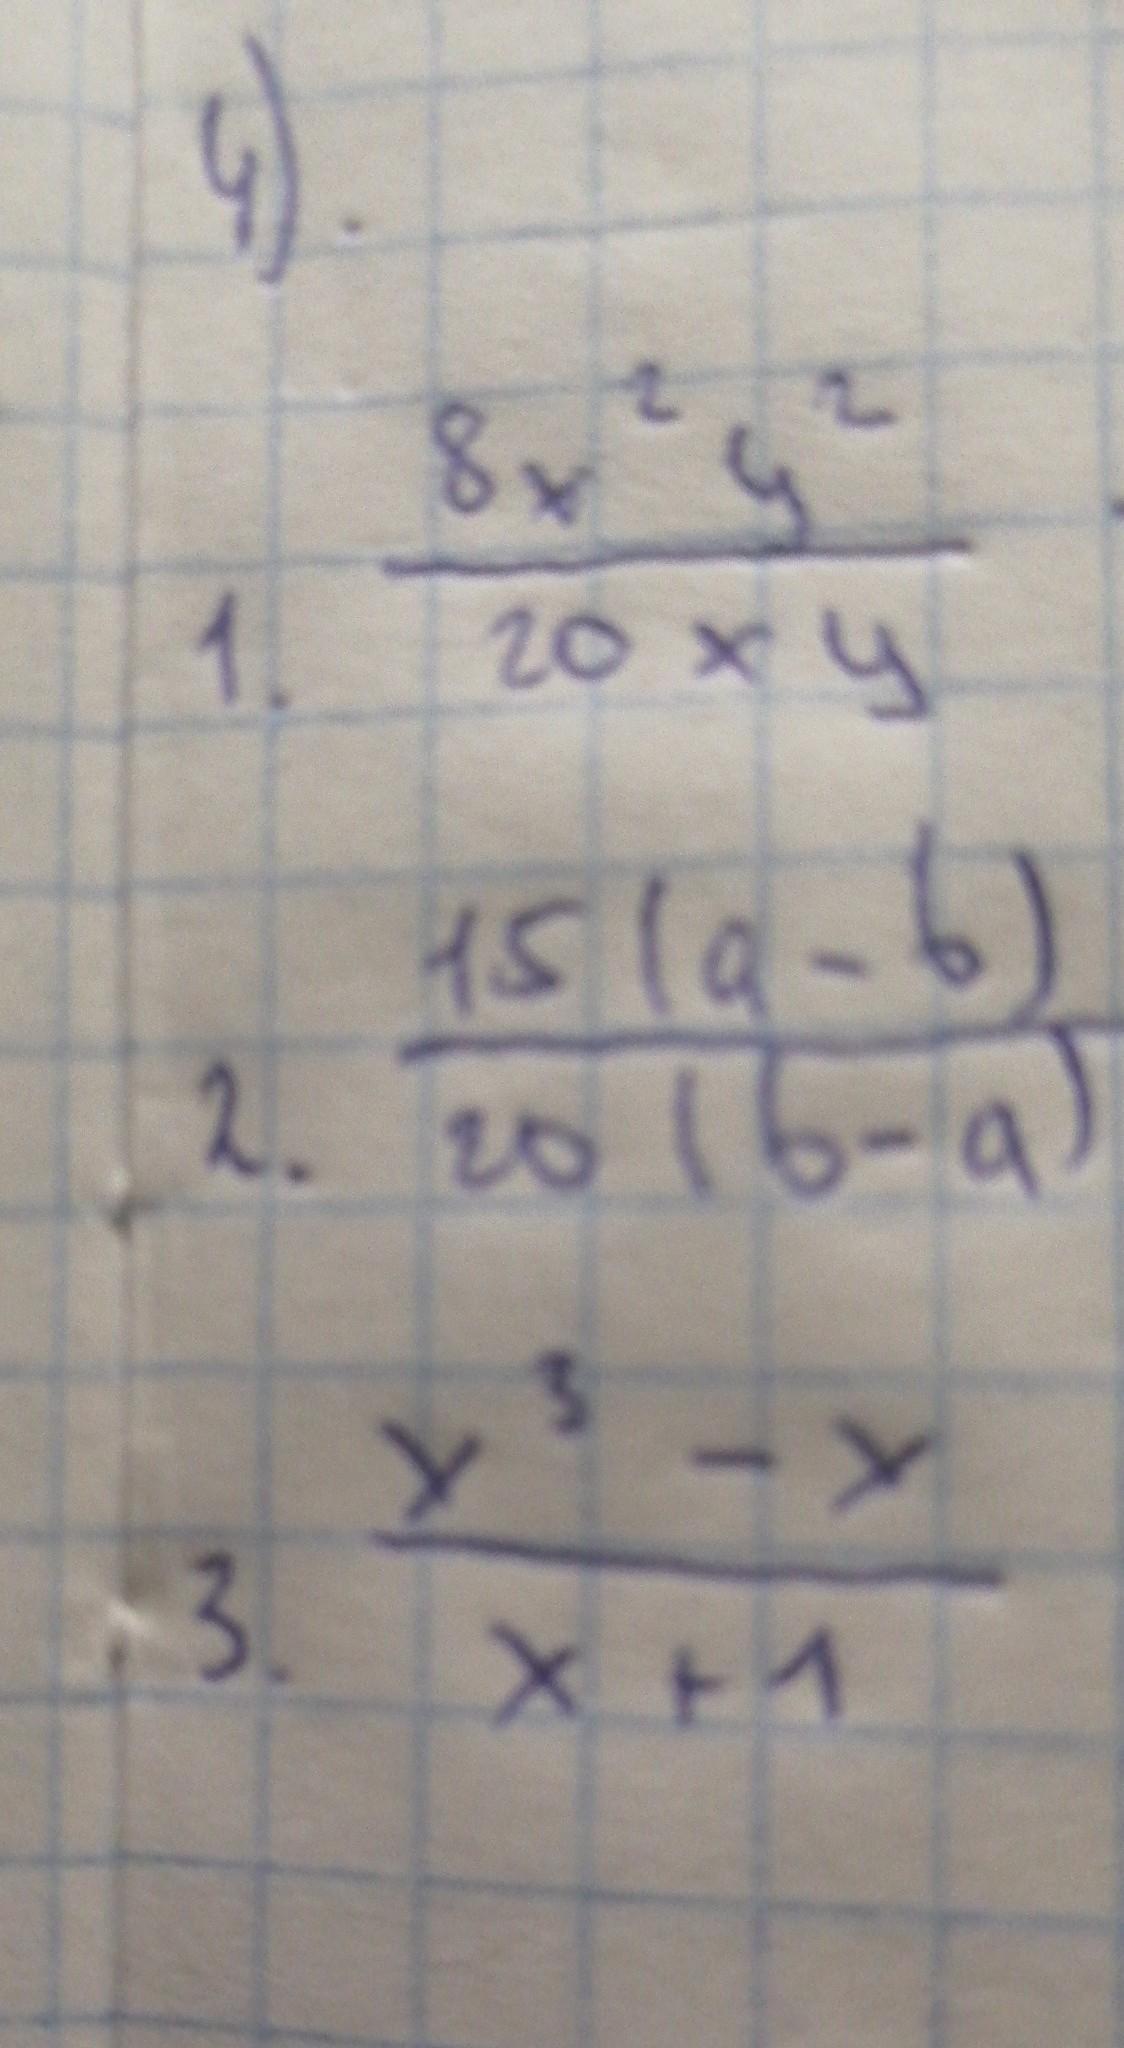 4).
1. 8x²y² / 20xy
2. 15(a-b) / 20(b-a)
3. x³ - x / x + 1